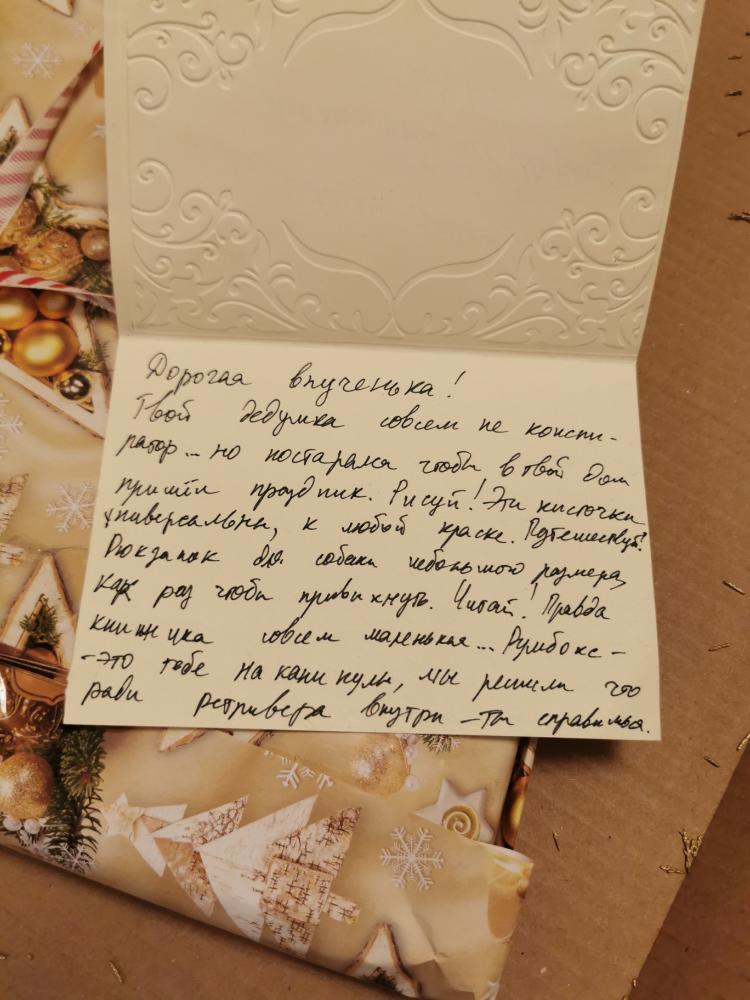 Дорогая внученька!
Твой дедушка совсем не конспи-
ратор... но постарался чтобы в твой дом
пришёл праздник. Рисуй! Эти кисточки
универсальны, к любой краске. Путешествуй!
Рюкзачок для собаки небольшого размера,
как раз чтобы привыкнуть. Читай! Правда
книжечка совсем маленькая... Румбокс -
- это тебе на каникулы, мы решили что
ради ретривера внутри - ты справишься.